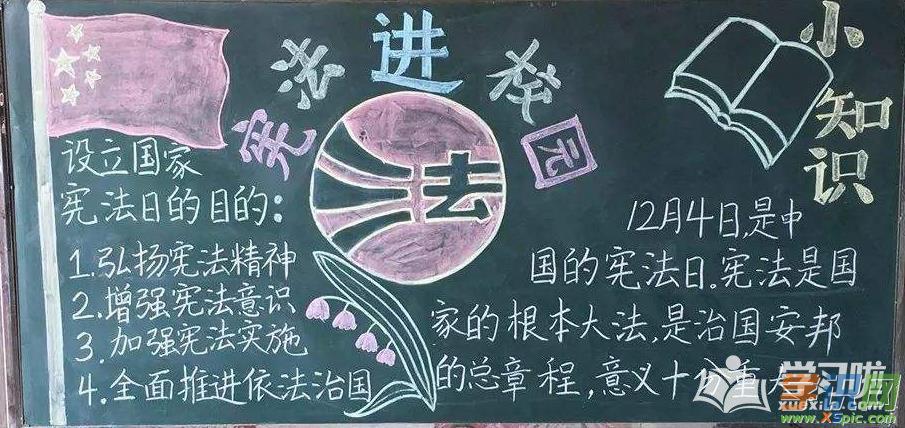 宪法进校园
法
小知识
设立国家
宪法日的目的:
1.弘扬宪法精神
2.增强宪法意识
3.加强宪法实施
4.全面推进依法治国
12月4日,是中
国的宪法日。宪法是国
家的根本大法,是治国安邦
的总章程,意义十分重大
学习啦
www.XSpic.com